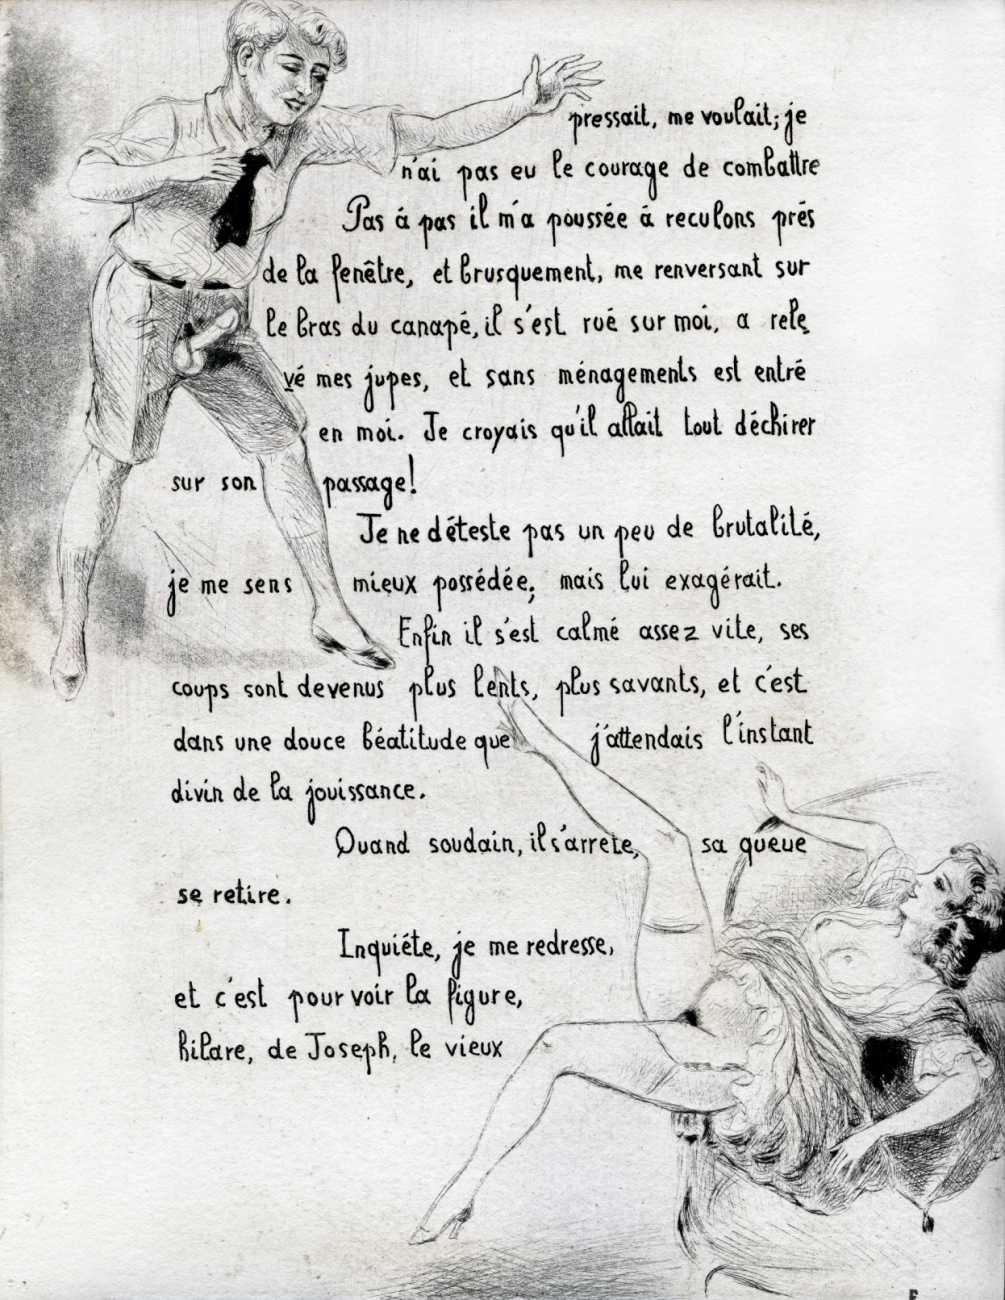 pressait, me voulait; je
n'ai pas eu le courage de combattre
Pas á pas il m'a poussée á reculons prés
de la fenêtre, et brusquement, me renversant sur
le bras du canapé, il s'est rué sur moi, a rele
vé mes jupes, et sans ménagements est entré
en moi. Je croyais qu'il allait tout déchirer
sur son passage!
Je ne déteste pas un peu de brutalité,
je me sens mieux possédée; mais lui exagérait.
Enfin il s'est calmé assez vite, ses
coups sont devenus plus lents, plus savants, et c'est
dans une douce béatitude que j'attendais l'instant
divin de la jouissance.
Quand soudain, il s'arrete, sa queue
se retire.
Inquiéte, je me redresse,
et c'est pour voir la figure,
hilare, de Joseph, le vieux